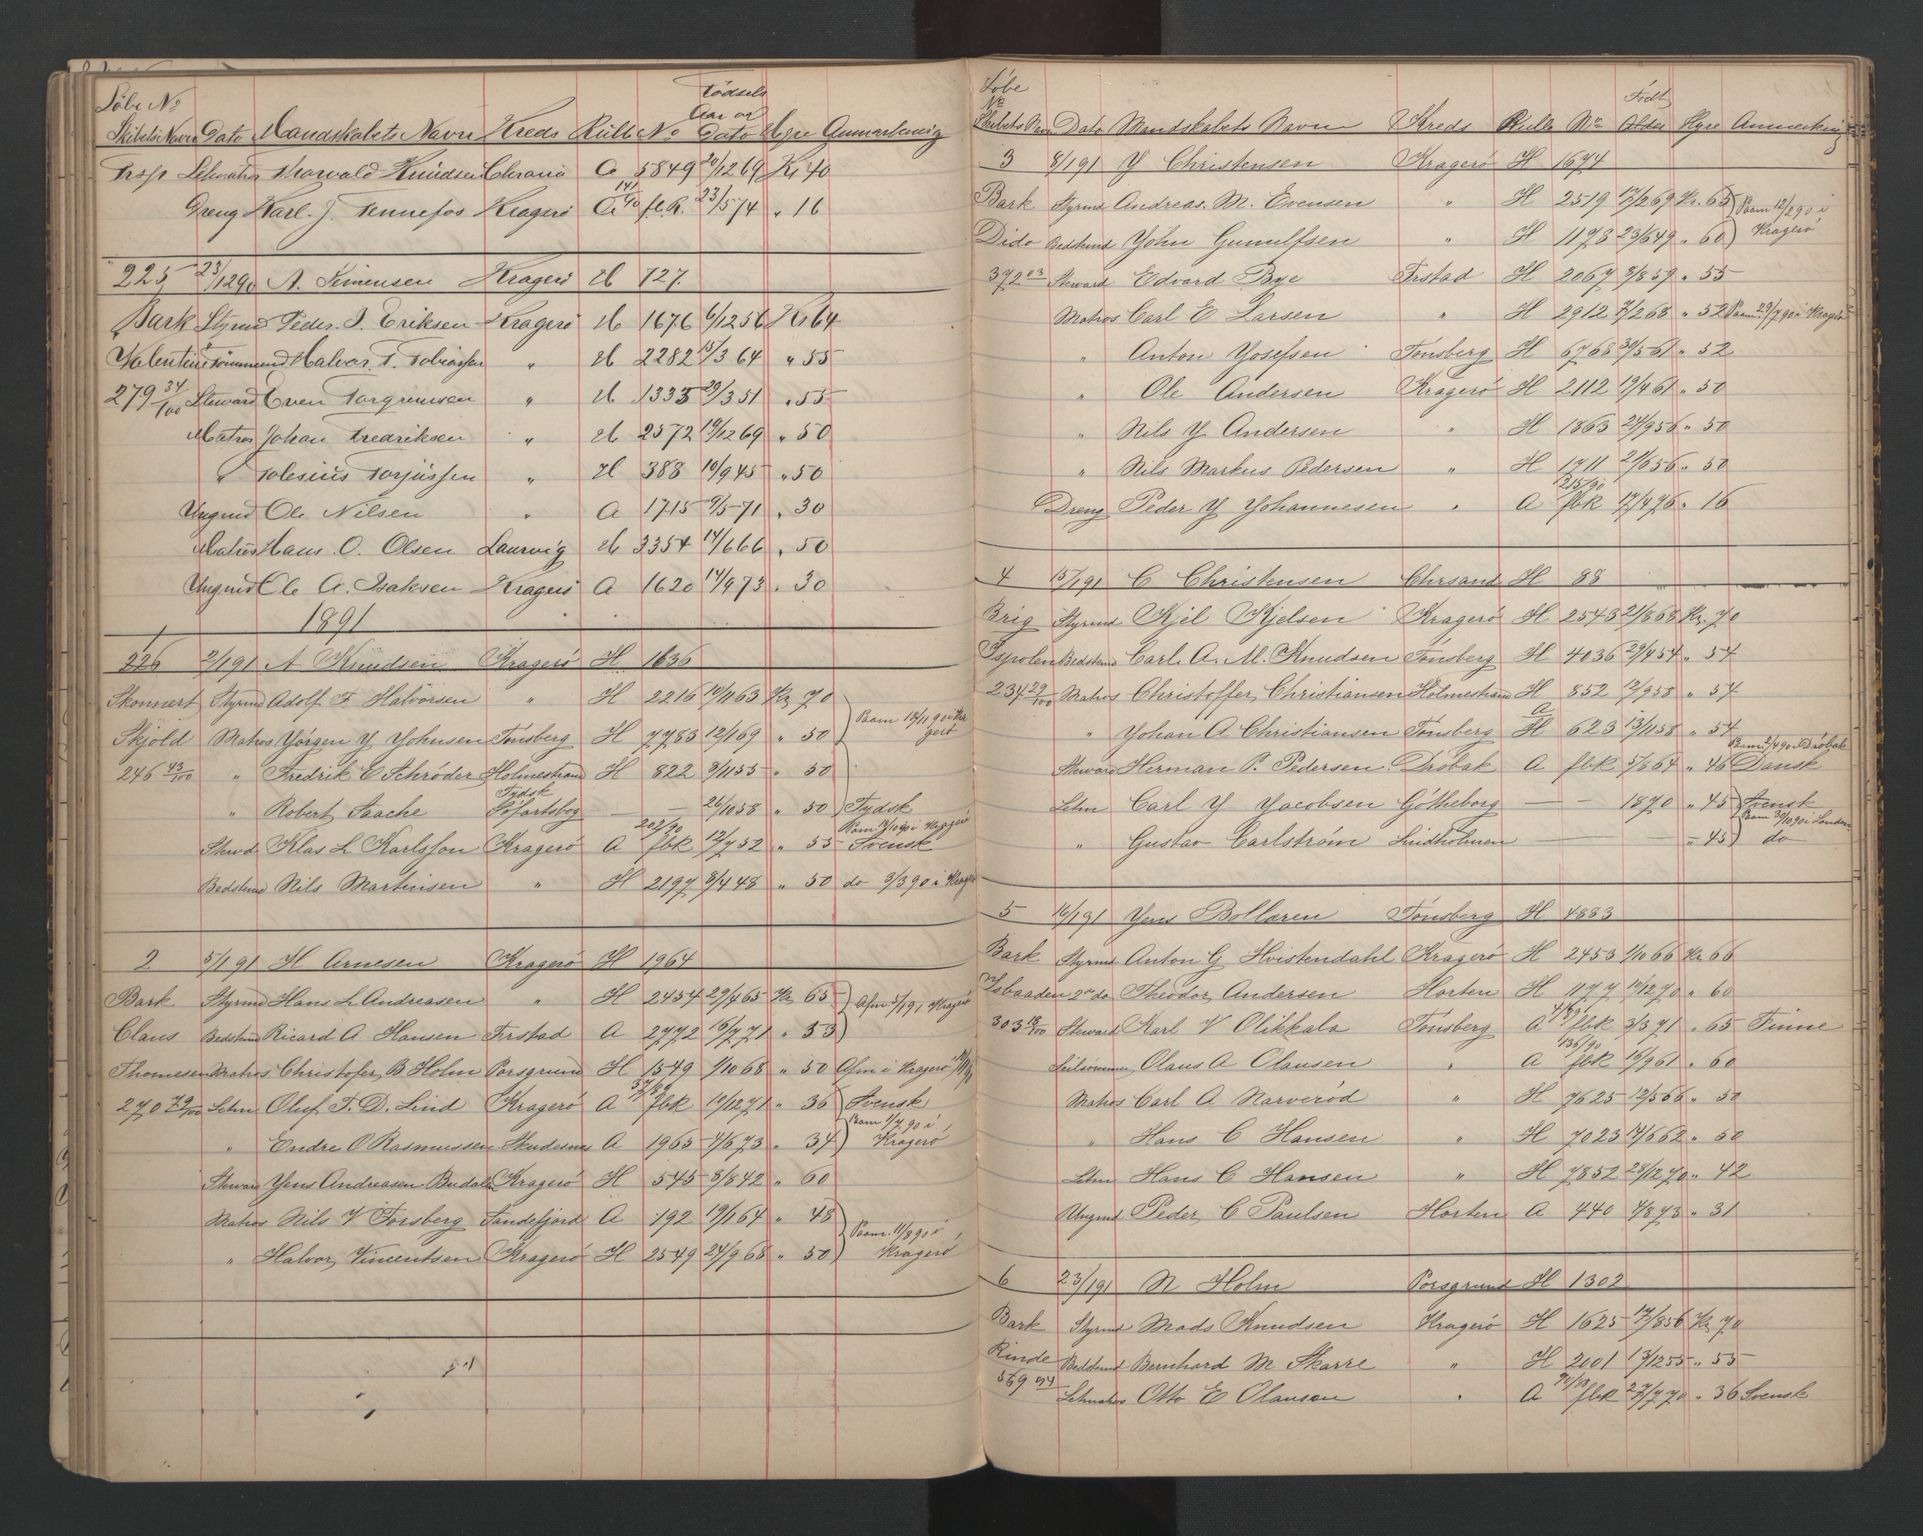 Löbe No
Skibets Navn Dato Mandskabets Navn Kreds Rulle No Födsels Aar og Dato Hyre Anmærkning
Letmatros Thorvald Knudsen Chrania A 5849 20/12 69 Kr 40
Dreng Karl. J. Tennefos Kragerö A 141/90 fl.R. 23/5 74 " 16
225 23/12 90 A. Simensen Kragerö H 727.
Bark Styrmd Peder. J. Eriksen Kragerö H 1676 6/12 56 Kr 64
Valentin Tömmermd Halvor T. Tobiassen " H 2282 15/3 64 " 55
279 34/100 Steward Even Torgrimsen " H 1335 29/3 51 " 55
Matros Johan Fredriksen " H 2572 19/12 69 " 50
" Tolesius Torjussen " H 388 10/9 45 " 50
Ungmd Ole Nilsen " A 1715 9/5 71 " 30
Matros Hans. O. Olsen Laurvig H 3354 14/6 66 " 50
Ungmd Ole A. Isaksen Kragerö A 1620 14/9 73 " 30
1891
1
226 2/1 91 A Knudsen Kragerö H 1636
Skonnert Styrmd Adolf F Halvorsen " H 2216 10/11 63 Kr 70
Skjold Matros Yörgen Y Yohnsen Tönsberg H 7783 12/1 69 " 50 Paam 18/11 90 i Kragerö
246 43/100 " Fredrik E Schröder Holmestrand H 822 3/11 55 " 50
" Robert Saache Tydsk Söfartsbog — — 26/10 58 " 50 Tydsk
Stewd Klas L Karlsson Kragerö A 202/90 fbk 12/7 52 " 55 Paam 13/10 90 i Kragerö Svensk
Bedstmd Nils Martinsen " H 2197 3/4 48 " 50 do 3/3 90 i Kragerö
2 5/1 91 H Arnesen Kragerö H 1964
Bark Styrmd Hans L Andreasen " H 2454 29/4 65 Kr 65 Afm 5/1 91 Kragerö
Claus Bedstmd Ricard A Hansen Firstad A 2772 16/7 71 " 53
Thomesen Matros Christofer B Holm Porsgrund H 1549 1/10 68 " 50 Afm i Kragerö
270 79/100 Letm Oluf T. D. Lind Kragerö A 37/89 fbk 10/12 71 " 36 Svensk
" Endre O Rasmussen Skudesnes A 1965 4/6 73 " 34 Paam 1/7 90 i Kragerö
Steward Yens Andreasen Budalen Kragerö H 545 8/8 42 " 60
Matros Nils V Forsberg Sandefjord A 192 19/1 64 " 48
" Halvor Vincentsen Kragerö H 2549 24/9 68 " 50 Paam. 11/8 90 i Kragerö
Löbe No
Skibets Navn Dato Mandskabets Navn Kreds Rulle No Födt Alder Hyre Anmerkning
3 8/1 91 Y Christensen Kragerö H 1674
Bark Styrmd Andreas. M. Evensen " H 2519 17/2 69 Kr. 65 Paam 12/2 90 i
Dido Bedstmd Yohn Gunulfsen " H 1173 23/6 49 " 60 Kragerö
372 03 Steward Edvard Bye Firstad H 2067 8/8 59 " 55
Matros Carl E Larsen " H 2912 7/2 68 " 52 Paam. 29/7 90 i Kragerö
" Anton Yosefsen Tönsberg H 6768 30/5 61 " 52
" Ole Andersen Kragerö H 2112 19/4 61 " 50
" Nils Y Andersen " H 1863 24/9 56 " 50
" Nils Markus Pedersen " H 1711 21/6 56 " 50
Dreng Peder Y Yohannesen " A 215/90 fbk 17/4 76 " 16
4 15/1 91 C Christensen Chrsand H 88
Brig Styrmd Kjel Kjelsen Kragerö H 2543 21/8 68 Kr. 70
Ispolen Bedstmd Carl. A. M. Knudsen Tönsberg H 4036 29/4 54 " 54
234 29/100 Matros Christoffer Christiansen Holmestrand H 852 12/9 58 " 54
" Yohan A Christiansen Tönsberg A H 623 13/11 58 " 54
Steward Herman P. Pedersen Dröbak A fbk 5/6 64 " 46 Paam. 2/4 90 i Dröbak Dansk
Letm Carl Y Yacobsen Götheborg — — 1870 " 45 Svensk
" Gustav Carlström Lindholmen — — " 45 Paam 30/10 90 i London do
5 16/1 91 Yens Bollæren Tönsberg H 4883
Bark Styrmd Anton G Hvistendahl Kragerö H 2453 1/10 66 Kr 66
Isbaaden 2den do Theodor Andersen Horten H 1177 10/12 70 " 60
303 18/100 Steward Karl V Olikkala Tönsberg A fbk 3/3 71 " 65 Finne
Olaus A Olausen " A 136/90 fbk 10/9 61 " 60
Matros Carl A Narveröd " H 7625 12/5 66 " 50
" Hans C Hansen " H 7023 14/6 62 " 50
Letm Hans C Hansen " H 7852 28/12 70 " 42
Ungmd Peder C Paulsen Horten A 440 4/8 73 " 31
6 23/1 91 N Holm Porsgrund H 1302
Bark Styrmd Mads Knudsen Kragerö H 1625 17/8 56 Kr. 70
Rinde Bedstmd Bernhard M Skarre " H 2001 13/12 55 " 55
569 94 Letmatros Otto E Olausen " A fbk 27/7 70 " 36 Svensk